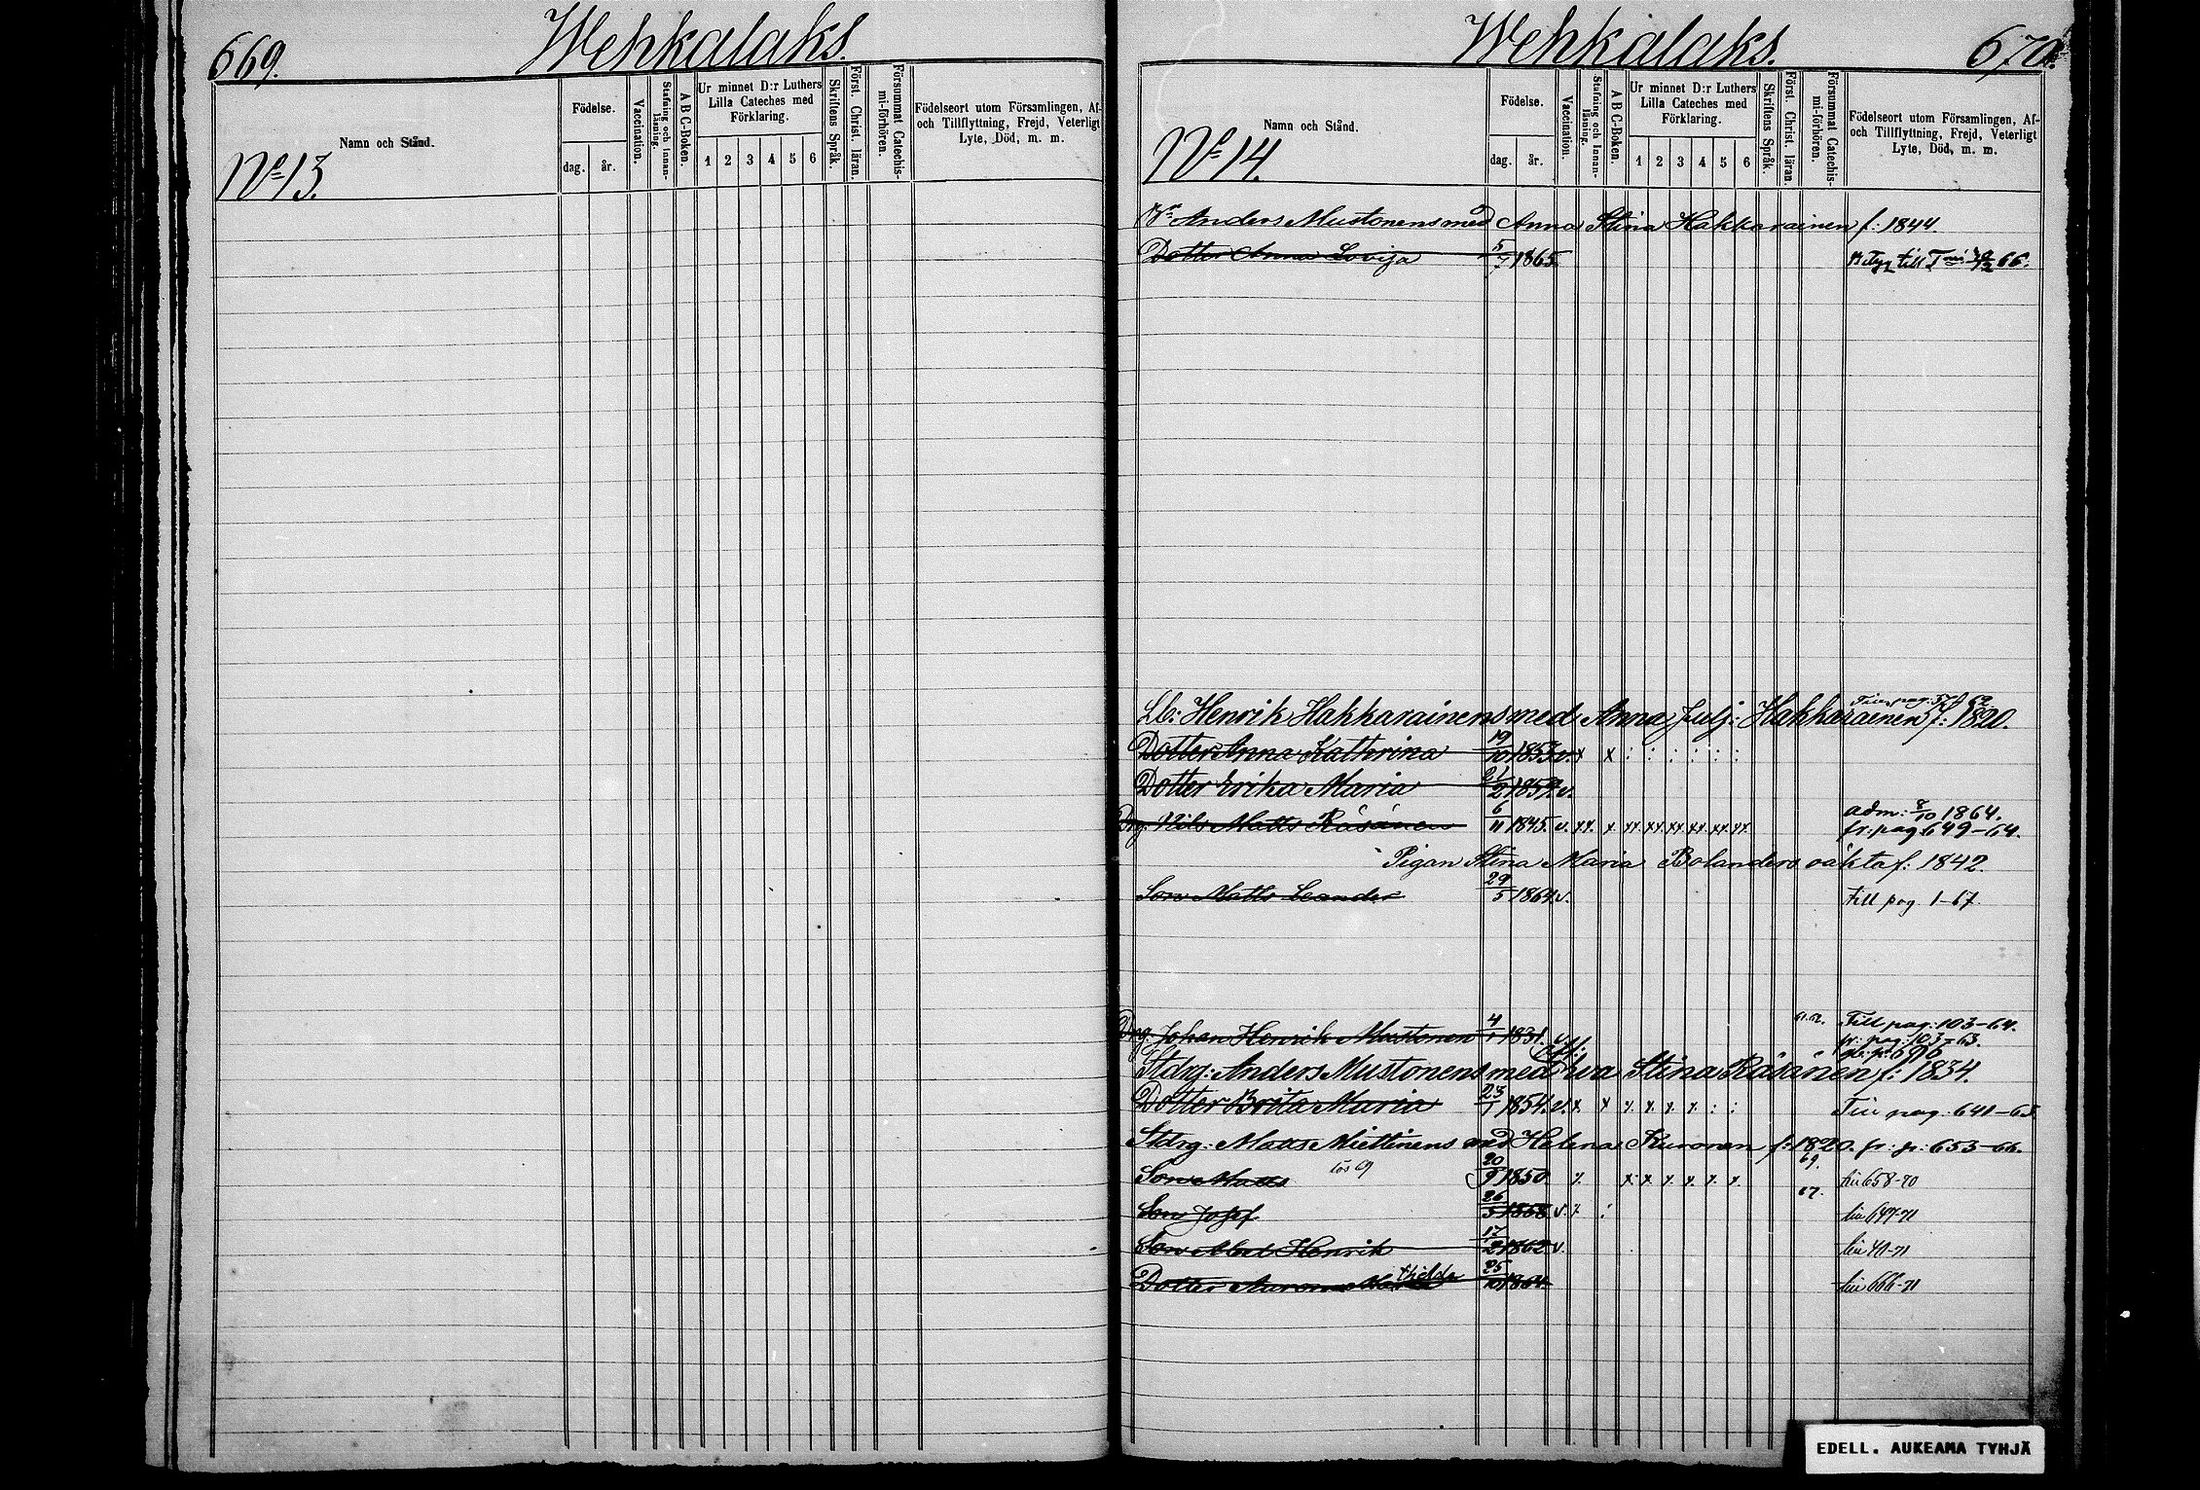 669.
Wehkalaks.
Namn och Stånd.
Födelse.
dag.
år.
Vaccination.
Stafning och Innan-
läsning.
A B C-Boken.
Ur minnet D:r Luthers
Lilla Cateches med
Förklaring.
1 2 3 4 5 6
Skriftens Språk.
Först. Christ. läran.
Försummat Catechis-
mi-förhören.
Födelseort utom Församlingen, Af-
och Tillflyttning, Frejd, Veterligt
Lyte, Död, m. m.
No 13.
Wehkalaks.
670.
Namn och Stånd.
Födelse.
dag.
år.
Vaccination.
Stafning och Innan-
läsning.
A B C-Boken.
Ur minnet D:r Luthers
Lilla Cateches med
Förklaring.
1 2 3 4 5 6
Skriftens Språk.
Först. Christ. läran.
Försummat Catechis-
mi-förhören.
Födelseort utom Församlingen, Af-
och Tillflyttning, Frejd, Veterligt
Lyte, Död, m. m.
No 14.
Anders Mustonens med Anna Stina Hakkarainen f: 1844.
Dotter Anna Lovisa 5/7 1865. Betyg till 66.
Lb: Henrik Hakkarainens med Anna Julj: Hakkarainen f: 1820.
Dotter Anna Kathrina 19/10 1853 v. x x : : : : : :
Dotter Erika Maria 21/2 1859. v.
adm: 8/10 1864.
Drg. Nils Matts Räsänen 6/11 1845. v. xx. x xx. xx. xx. xx. xx. xx. fr: pag: 649-64.
Pigan Stina Maria Bolanders oäkta f: 1842.
Son Matts Leander 29/5 1864 v. till pag. 1-67.
Drg. Johan Henrik Mustonen 4/1 1831. v. 61.62. Till pag: 103-64.
fr: pag: 103-63.
Stdrg: Anders Mustonens med Eva Stina Räsänen f: 1834.
Dotter Brita Maria 23/1 1854. v. x. x x. x. x. x. : : Till pag: 641-63
Stdrg: Matts Miettinens med Helena Kuronen f: 1820. fr: p: 653-66.
Son Matts lös 69 20/9 1850 x x x x x x x 69. till 658-70
Son Josef 26/5 1858 v. x : 67. till 647-71
Son Abel Henrik 17/2 1862 v. till 41-71
Dotter Aurora Mathilda 25/10 1864. till 666-71
EDELL. AUKEAMA TYHJÄ